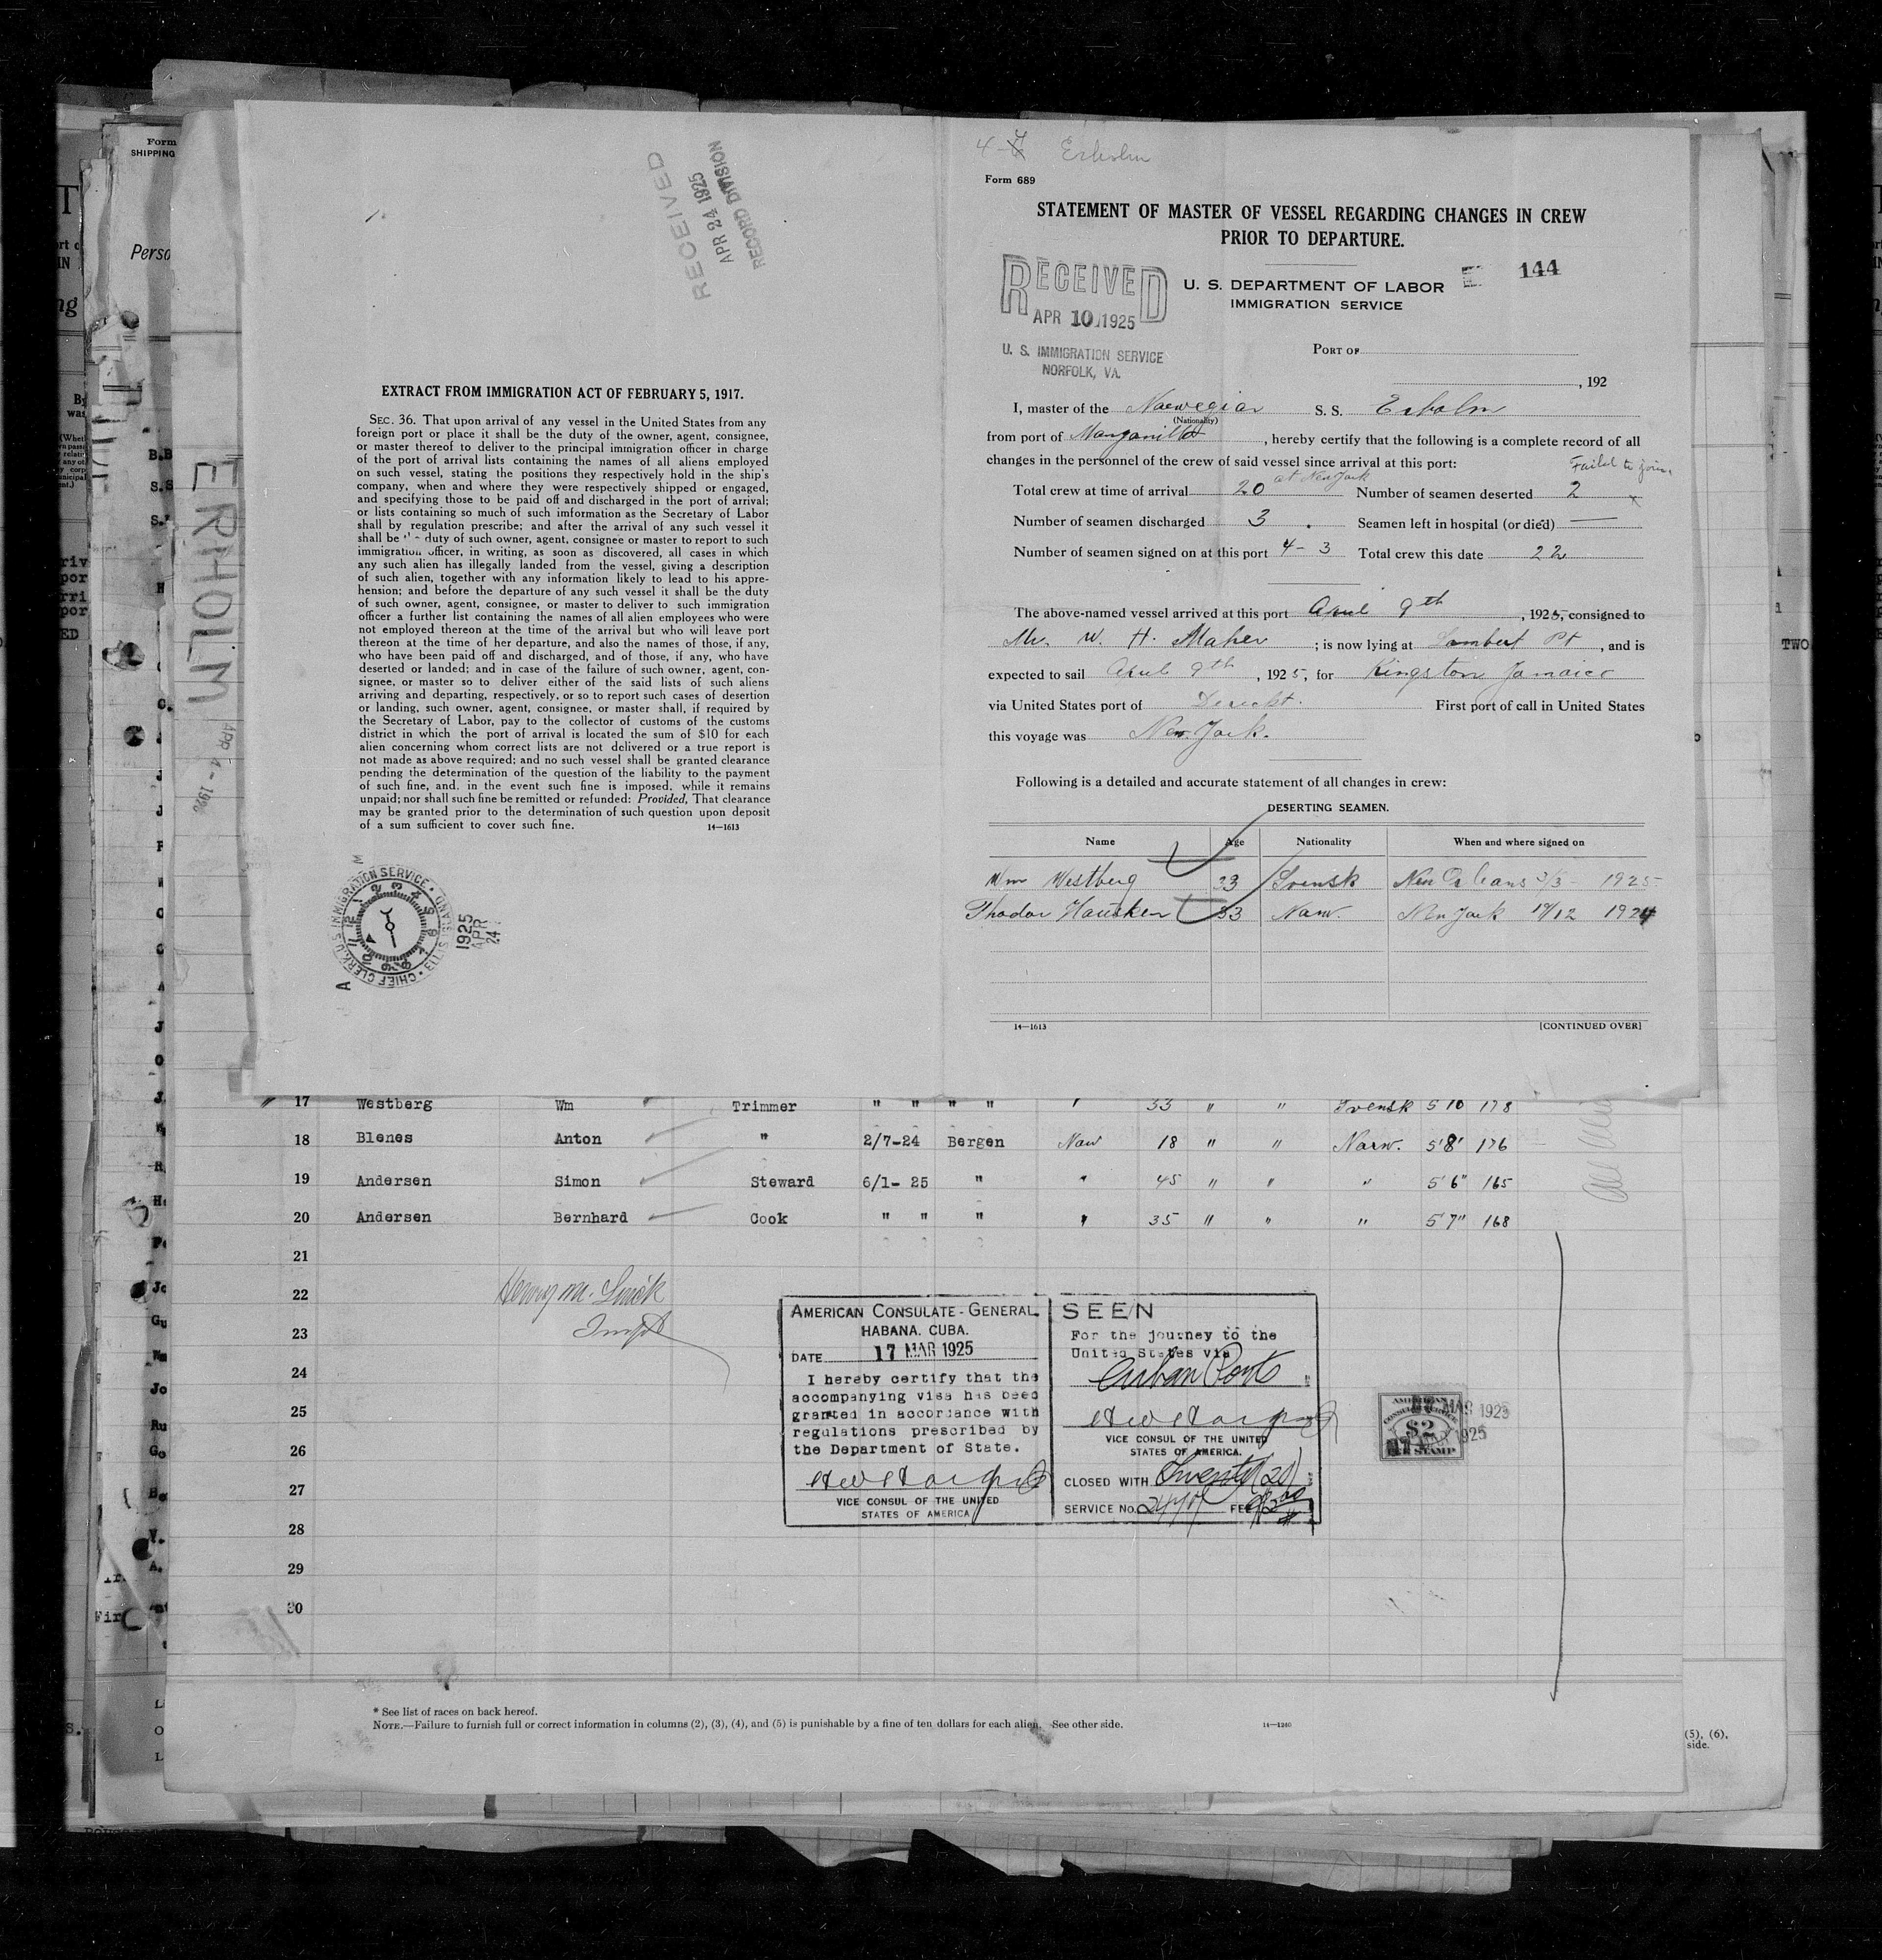 RECEIVED
APR 24 1925
RECORD DIVISION
EXTRACT FROM IMMIGRATION ACT OF FEBRUARY 5, 1917.
SEC. 36. That upon arrival of any vessel in the United States from any
foreign port or place it shall be the duty of the owner, agent, consignee,
or master thereof to deliver to the principal immigration officer in charge
of the port of arrival lists containing the names of all aliens employed
on such vessel, stating the positions they respectively hold in the ship's
company, when and where they were respectively shipped or engaged,
and specifying those to be paid off and discharged in the port of arrival;
or lists containing so much of such imformation as the Secretary of Labor
shall by regulation prescribe; and after the arrival of any such vessel it
shall be duty of such owner, agent, consignee or master to report to such
immigration officer, in writing, as soon as discovered, all cases in which
any such alien has illegally landed from the vessel, giving a description
of such alien, together with any information likely to lead to his appre-
hension; and before the departure of any such vessel it shall be the duty
of such owner, agent, consignee, or master to deliver to such immigration
officer a further list containing the names of all alien employees who were
not employed thereon at the time of the arrival but who will leave port
thereon at the time of her departure, and also the names of those, if any,
who have been paid off and discharged, and of those, if any, who have
deserted or landed; and in case of the failure of such owner, agent, con-
signee, or master so to deliver either of the said lists of such aliens
arriving and departing, respectively, or so to report such cases of desertion
or landing, such owner, agent, consignee, or master shall, if required by
the Secretary of Labor, pay to the collector of customs of the customs
district in which the port of arrival is located the sum of $10 for each
alien concerning whom correct lists are not delivered or a true report is
not made as above required; and no such vessel shall be granted clearance
pending the determination of the question of the liability to the payment
of such fine, and. in the event such fine is imposed. while it remains
unpaid; nor shall such fine be remitted or refunded: Provided, That clearance
may be granted prior to the determination of such question upon deposit
of a sum sufficient to cover such fine.
14—1613
CHIEF CLERK, U. S. IMMIGRATION SERVICE
1925
APR
24
Form 689
STATEMENT OF MASTER OF VESSEL REGARDING CHANGES IN CREW
PRIOR TO DEPARTURE.
RECEIVED
APR 10 1925
U. S. IMMIGRATION SERVICE
NORFOLK, VA.
U. S. DEPARTMENT OF LABOR
IMMIGRATION SERVICE
144
PORT OF
, 192
I, master of the Norwegian S. S. Erholm
(Nationality)
from port of Manzanillo, hereby certify that the following is a complete record of all
changes in the personnel of the crew of said vessel since arrival at this port:
Failed to join
Total crew at time of arrival 20 at New York Number of seamen deserted 2
Number of seamen discharged 3 . Seamen left in hospital (or died) —
Number of seamen signed on at this port 4- 3 Total crew this date 22
The above-named vessel arrived at this port April 9th, 1925, consigned to
Mr. W. H. Maher ; is now lying at Lambert Pt, and is
expected to sail April 9th, 1925, for Kingston Jamaica
via United States port of Direckt. First port of call in United States
this voyage was New York.
Following is a detailed and accurate statement of all changes in crew:
DESERTING SEAMEN.
Name Age Nationality When and where signed on
Wm Westberg 33 Svensk New Orleans 3/3 - 1925
Thodor Hausken 33 Norw. New York 19/12 1924
14—1613
[CONTINUED OVER]
ERHOLM
17 Westberg Wm Trimmer " " " " " 33 " " Svensk 5 10 178
18 Blenes Anton " 2/7-24 Bergen New 18 " " Norw. 5'8' 176
19 Andersen Simon Steward 6/1- 25 " " 45 " " " 5'6" 165
20 Andersen Bernhard Cook " " " " 35 " " " 5'7" 168
21
22
23
24
25
26
27
28
29
30
AMERICAN CONSULATE-GENERAL
HABANA. CUBA.
DATE 17 MAR 1925
I hereby certify that the
accompanying visa has been
granted in accordance with
regulations prescribed by
the Department of State.
VICE CONSUL OF THE UNITED
STATES OF AMERICA
SEEN
For the journey to the
United States via
Cuban Ports
VICE CONSUL OF THE UNITED
STATES OF AMERICA.
CLOSED WITH Twenty (20)
SERVICE No.
FEE
AMERICAN
CONSULAR SERVICE
$2
FEE STAMP
* See list of races on back hereof.
NOTE.—Failure to furnish full or correct information in columns (2), (3), (4), and (5) is punishable by a fine of ten dollars for each alien. See other side.
14—1240
Form
SHIPPING
TWO
(5), (6),
side.